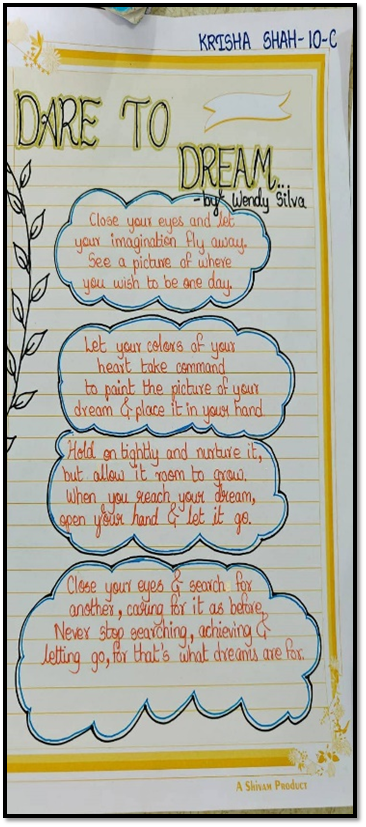 KRISHA SHAH-10-C
DARE TO
DREAM...
-by: Wendy Silva
Close your eyes and let
your imagination fly away.
See a picture of where
you wish to be one day.
Let your colors of your
heart take command
to paint the picture of your
dream & place it in your hand
Hold on tightly and nurture it,
but allow it room to grow.
When you reach your dream,
open your hand & let it go.
Close your eyes & search for
another, caring for it as before,
Never stop searching, achieving &
letting go, for that's what dreams are for.
A SHIVAM PRODUCT